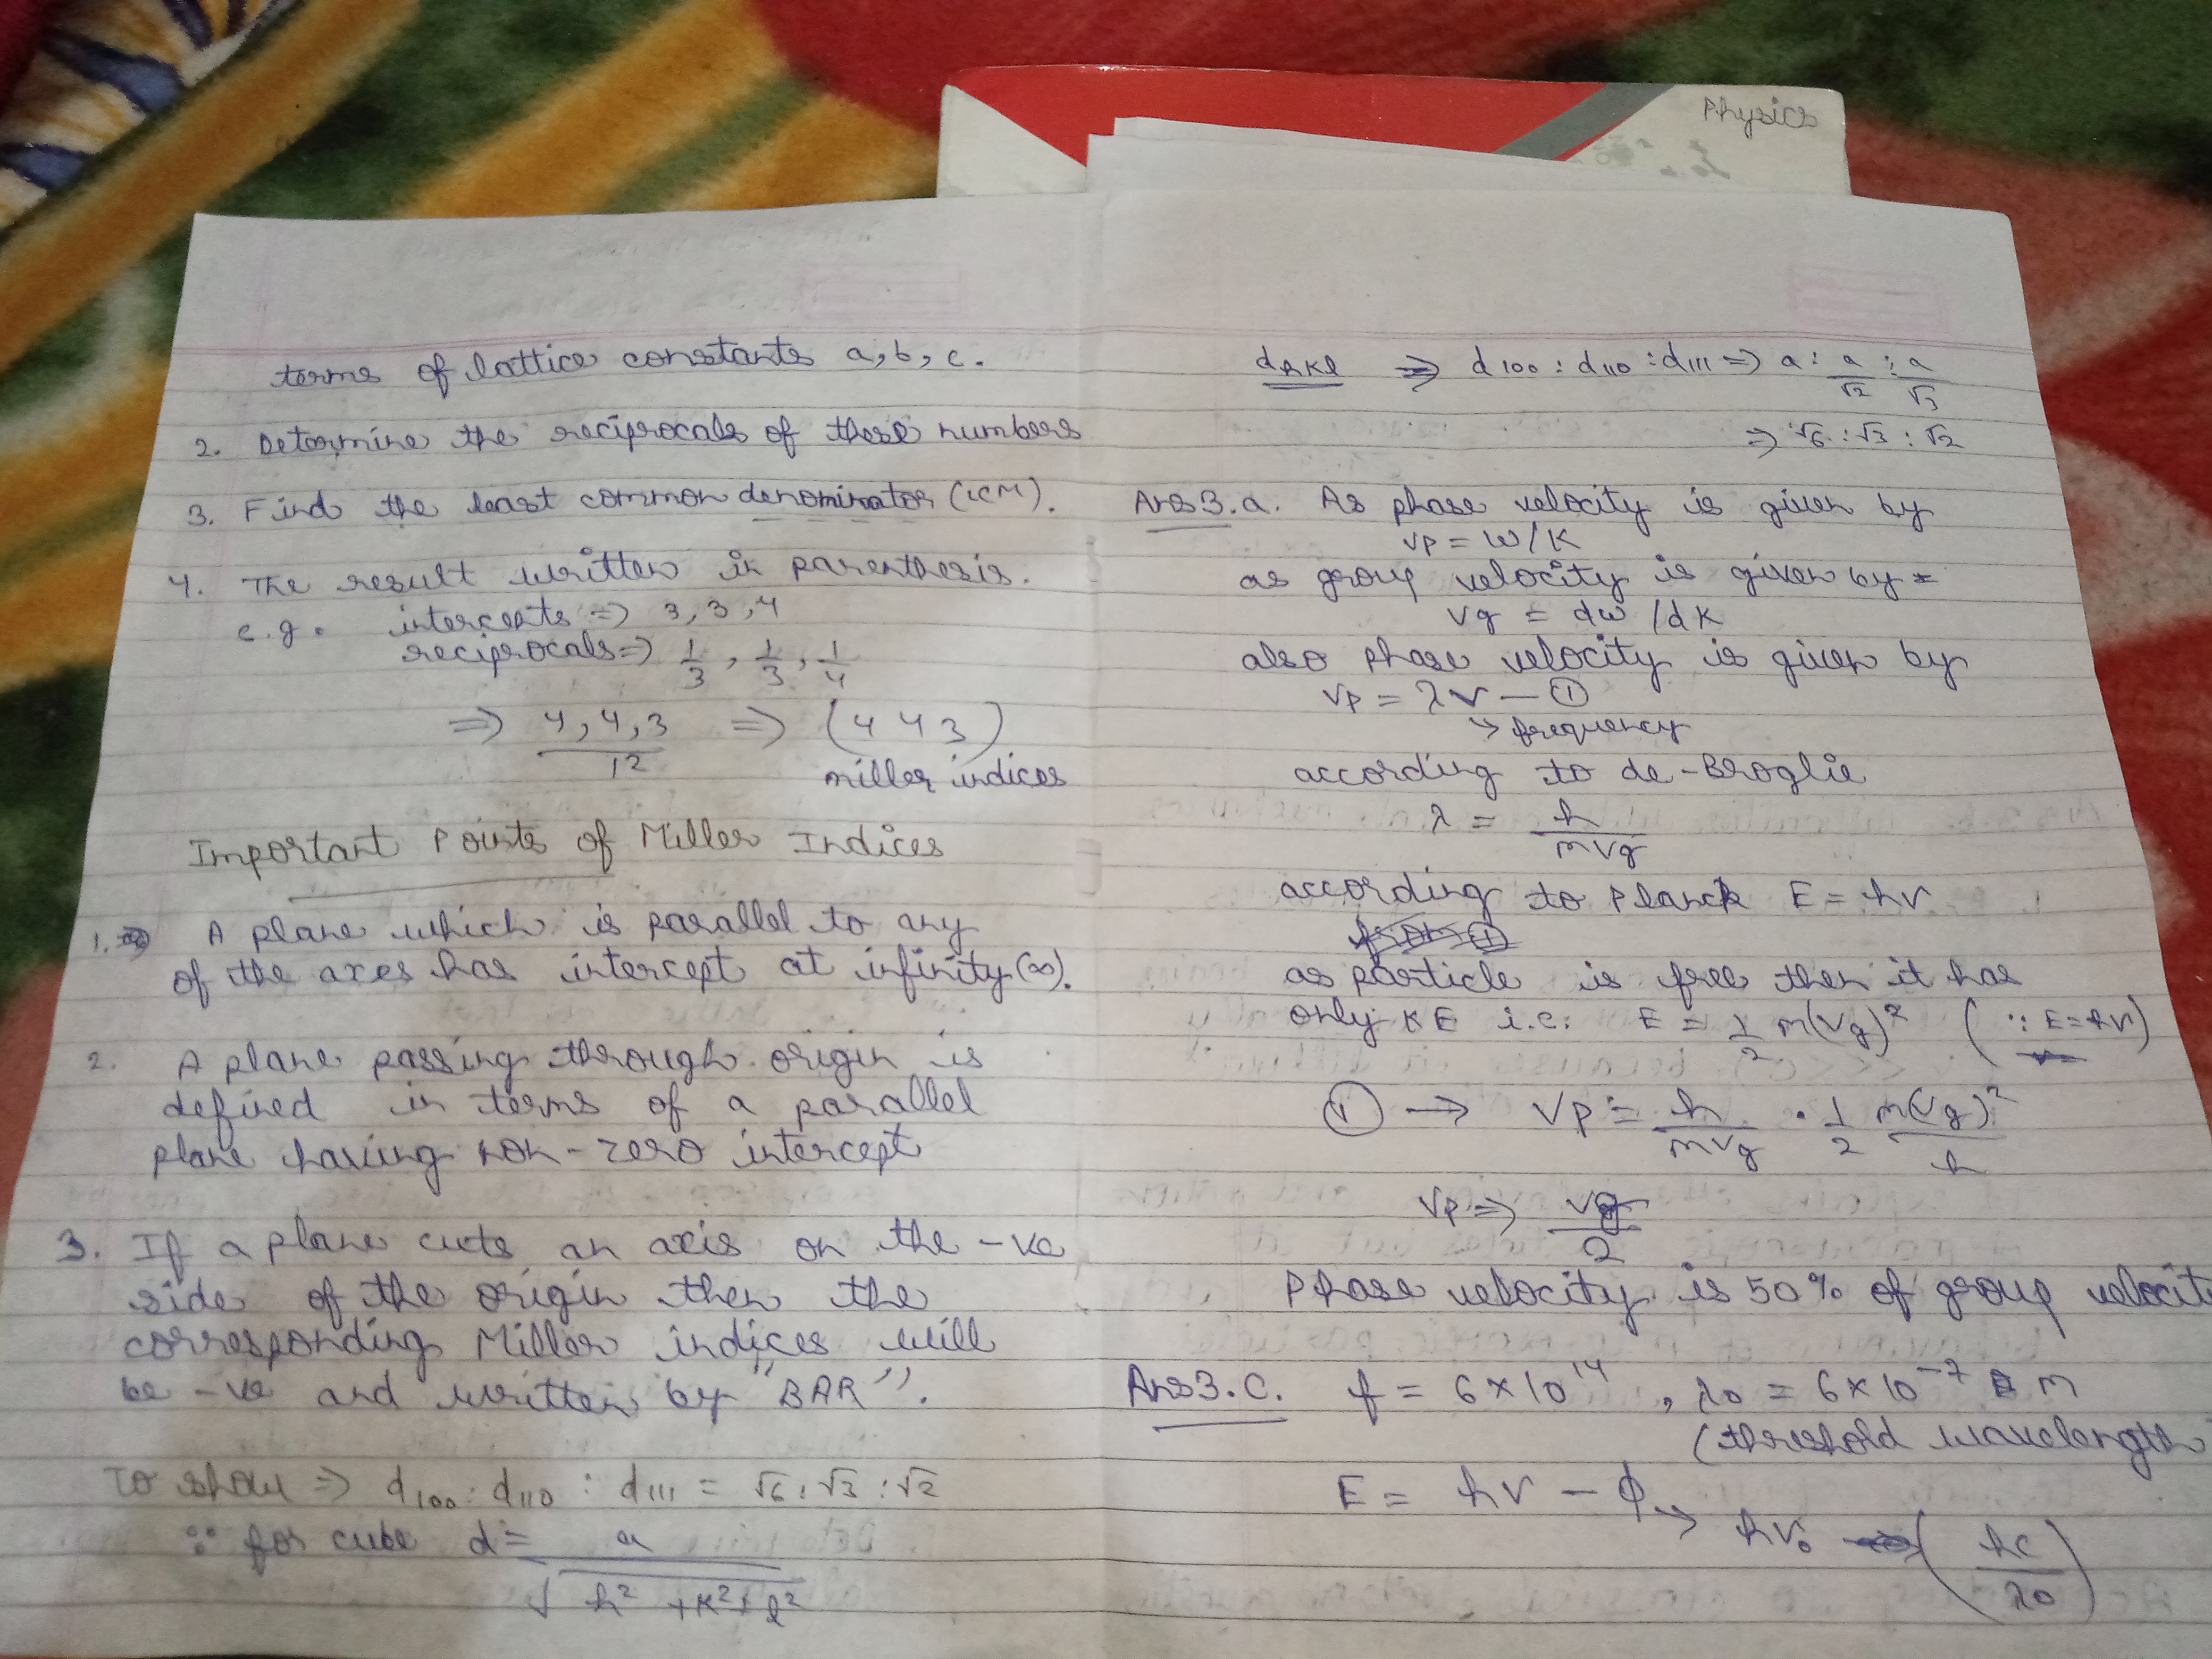 Physics
terms of lattice constants a, b, c.
2. Determine the reciprocals of these numbers
3. Find the least common denominator (LCM).
4. The result written in parenthesis.
e.g. intercepts ⇒ 3, 3, 4
reciprocals ⇒ 1/3, 1/3, 1/4
⇒ 4, 4, 3 / 12 ⇒ (4 4 3)
miller indices
Important Points of Miller Indices
1. A plane which is parallel to any
of the axes has intercept at infinity (∞).
2. A plane passing through origin is
defined in terms of a parallel
plane having non-zero intercept
3. If a plane cuts an axis on the -ve
side of the origin then the
corresponding Miller indices will
be -ve and written by "BAR".
To show ⇒ d100 : d110 : d111 = √6 : √3 : √2
∵ for cube d = a / √(h² + k² + l²)
dhkl ⇒ d100 : d110 : d111 ⇒ a : a/√2 : a/√3
⇒ √6 : √3 : √2
Ans3.a. As phase velocity is given by
vp = ω/K
as group velocity is given by =
vg = dω/dK
also phase velocity is given by
vp = λν — ①
→ frequency
according to de-Broglie
λ = h / mvg
according to Planck E = hν
as particle is free then it has
only KE i.e. E = 1/2 m(vg)² (∵ E = hν)
① → vp = h / mvg · 1/2 m(vg)² / h
vp ⇒ vg / 2
Phase velocity is 50% of group velocit
Ans3.C. f = 6 × 10¹⁴, λ0 = 6 × 10⁻⁷ m
(threshold wavelength
E = hν − φ → hν₀ (hc / λ0)